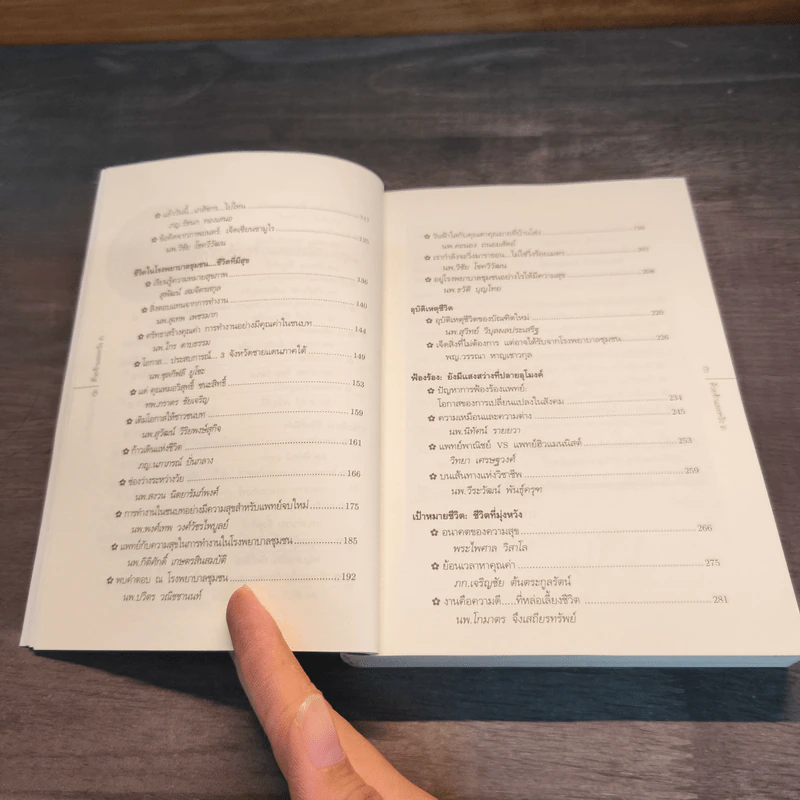 ✿ แล้ววันนี้...เภสัชฯ...ไปไหน
ภญ.รัชนา ทองเสนอ
✿ ข้อคิดจากภาพยนตร์ เจ็ดเซียนซามูไร 125
นพ.วิชัย โชควิวัฒน
ชีวิตในโรงพยาบาลชุมชน....ชีวิตที่มีสุข
✿ เรียนรู้ความหมายสุขภาพ 136
สุพัฒน์ สมจิตรสกุล
✿ สิ่งตอบแทนจากการทำงาน 140
นพ.สุเทพ เพชรมาก
✿ ศรัทธาสร้างคุณค่า การทำงานอย่างมีคุณค่าในชนบท 144
นพ.ไกร ดาบธรรม
✿ โอกาส... ประสบการณ์... 3 จังหวัดชายแดนภาคใต้ 149
นพ.ซุลกิฟลี ยูโซะ
✿ แด่ คุณหมอวิสุทธิ์ ชนะสิทธิ์ 153
ทพ.ภราดร ชัยเจริญ
✿ เติมโอกาสให้ชาวชนบท 159
นพ.สุวัฒน์ วิริยพงษ์สุกิจ
✿ ก้าวเดินแห่งชีวิต 161
ภญ.นภาภรณ์ ปั่นกลาง
✿ ช่องว่างระหว่างวัย 166
นพ.สงวน นิตยารัมภ์พงศ์
✿ การทำงานในชนบทอย่างมีความสุขสำหรับแพทย์จบใหม่ 175
นพ.พงศ์เทพ วงศ์วัชรไพบูลย์
✿ แพทย์กับความสุขในการทำงานในโรงพยาบาลชุมชน 185
นพ.กิติศักดิ์ เกษตรสินสมบัติ
✿ พบคำตอบ ณ โรงพยาบาลชุมชน 192
นพ.ปวิตร วณิชชานนท์
✿ วันฟ้าใสกับคุณตาคุณยายที่บ้านโฮ่ง
✿ เรากำลังจะวิ่งมาราธอน...ไม่ใช่วิ่งร้อยเมตร 202
นพ.วิชัย โชควิวัฒน
✿ อยู่โรงพยาบาลชุมชนอย่างไรให้มีความสุข 208
นพ.ธวัติ บุญไทย
อุบัติเหตุชีวิต
✿ อุบัติเหตุชีวิตของบัณฑิตใหม่ 220
นพ.สุวิทย์ วิบุลผลประเสริฐ
✿ เจ็ดสิ่งที่ไม่ต้องการ แต่อาจได้รับจากโรงพยาบาลชุมชน 226
พญ.วรรณา หาญเชาวกุล
ฟ้องร้อง: ยังมีแสงสว่างที่ปลายอุโมงค์
✿ ปัญหาการฟ้องร้องแพทย์:
โอกาสของการเปลี่ยนแปลงในสังคม 234
✿ ความเหมือนและความต่าง 245
นพ.นิทัศน์ รายยวา
✿ แพทย์พาณิชย์ VS แพทย์ฮิวแมนนิสต์ 253
วิทยา เศรษฐวงศ์
✿ บนเส้นทางแห่งวิชาชีพ 259
นพ.วีระวัฒน์ พันธุ์ครุฑ
เป้าหมายชีวิต: ชีวิตที่มุ่งหวัง
✿ อนาคตของความสุข 266
พระไพศาล วิสาโล
✿ ย้อนเวลาหาคุณค่า 275
ภก.เจริญชัย ตันตระกูลรัตน์
✿ งานคือความดี.....ที่หล่อเลี้ยงชีวิต 281
นพ.โกมาตร จึงเสถียรทรัพย์